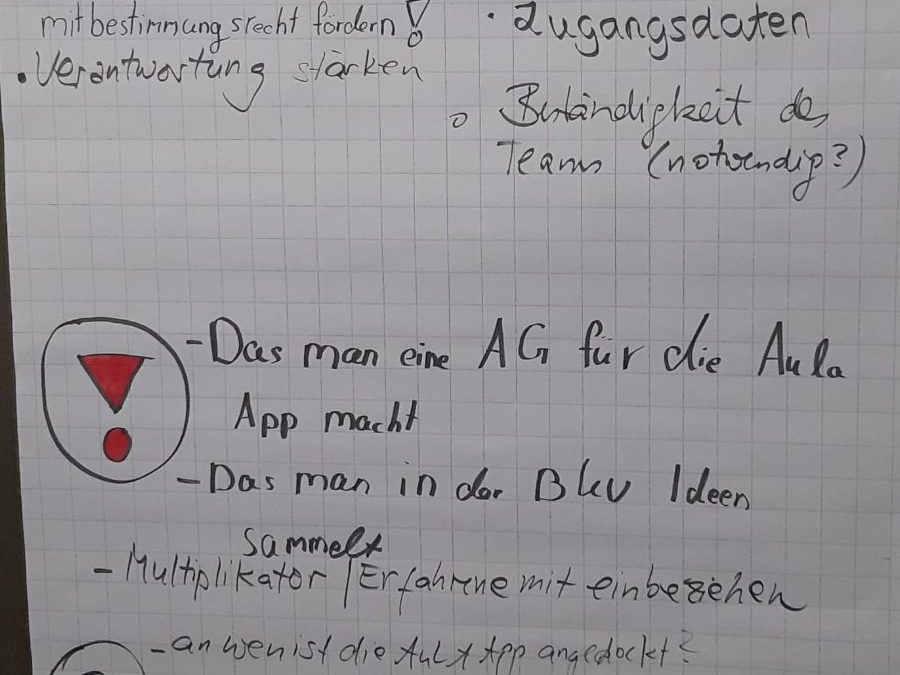 mitbestimmungsrecht fördern!
• Verantwortung stärken
• Zugangsdaten
○ Beständigkeit des
Teams (notwendig?)
-Das man eine AG für die Aula
App macht
-Das man in der BKV Ideen
sammelt
- Multiplikator / Erfahrene mit einbeziehen
-an wen ist die Aula App angedockt?